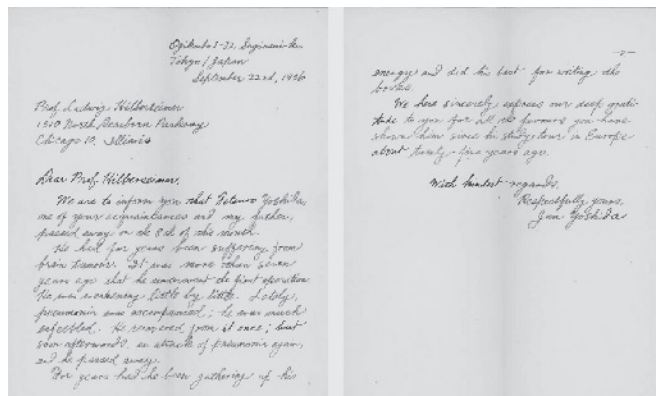 Ogikubo 1-32, Suginami-ku
Tokyo / Japan
September 22nd, 1956
Prof. Ludwig Hilberseimer
North Dearborn Parkway
Chicago 10, Illinois
Dear Prof. Hilberseimer,
We are to inform you that Tetsuro Yoshida,
one of your acquaintances and my father,
passed away on the 8th of this month.
He had for years been suffering from
brain tumour. It was more than seven
years ago that he underwent the first operation.
He was weakening little by little. Lately,
pneumonia was accompanied; he was much
enfeebled. He recovered from it once; but
soon afterwards, an attack of pneumonia again,
and he passed away.
For years had he been gathering up his
-2-
energy and did his best for writing the
books.
We here sincerely express our deep grati-
tude to you for all the favours you have
shown him since his study tour in Europe
about twenty-five years ago.
With kindest regards,
Respectfully yours,
Jun Yoshida